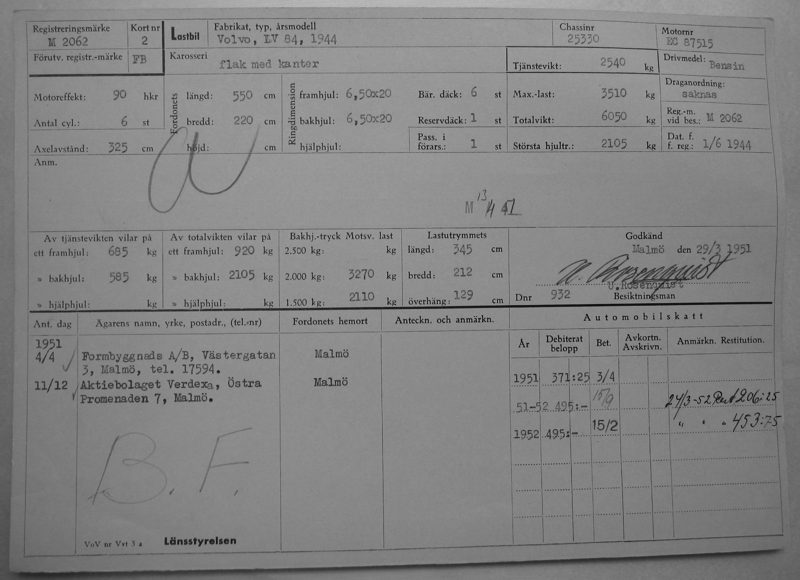 Registreringsmärke M 2062 Kort nr 2 Lastbil Fabrikat, typ, årsmodell Volvo, LV 84, 1944 Chassinr 25330 Motornr EC 87515
Förutv. registr.-märke FB Karosseri flak med kanter Tjänstevikt: 2540 kg Drivmedel: Bensin
Motoreffekt: 90 hkr Fordonets längd: 550 cm Ringdimension framhjul: 6,50x20 Bär. däck: 6 st Max.-last: 3510 kg Draganordning: saknas
Antal cyl.: 6 st bredd: 220 cm bakhjul: 6,50x20 Reservdäck: 1 st Totalvikt: 6050 kg Reg.-m. vid bes.: M 2062
Axelavstånd: 325 cm höjd: cm hjälphjul: Pass. i förars.: 1 st Största hjultr.: 2105 kg Dat. f. f. reg.: 1/6 1944
Anm.
M 13/4 51
Av tjänstevikten vilar på Av totalvikten vilar på Bakhj.-tryck Motsv. last Lastutrymmets Godkänd
ett framhjul: 685 kg ett framhjul: 920 kg 2.500 kg: kg längd: 345 cm Malmö den 29/3 1951
» bakhjul: 585 kg » bakhjul: 2105 kg 2.000 kg: 3270 kg bredd: 212 cm U. Rosenquist
U.Rosenquist
» hjälphjul: kg » hjälphjul: kg 1.500 kg: 2110 kg överhäng: 129 cm Dnr 932 Besiktningsman
Ant. dag Ägarens namn, yrke, postadr., (tel.-nr) Fordonets hemort Anteckn. och anmärkn. Automobilskatt
År Debiterat belopp Bet. Avkortn. Avskrivn. Anmärkn. Restitution.
1951
4/4 Formbyggnads A/B, Västergatan Malmö
3, Malmö, tel. 17594.
1951 371:25 3/4
11/12 Aktiebolaget Verdexa, Östra Malmö
Promenaden 7, Malmö.
51-52 495:- 15/9 24/3-52 Rest 206:25
1952 495:- 15/2 " " " 453:75
B. F.
VoV nr Vvt 3 a Länsstyrelsen